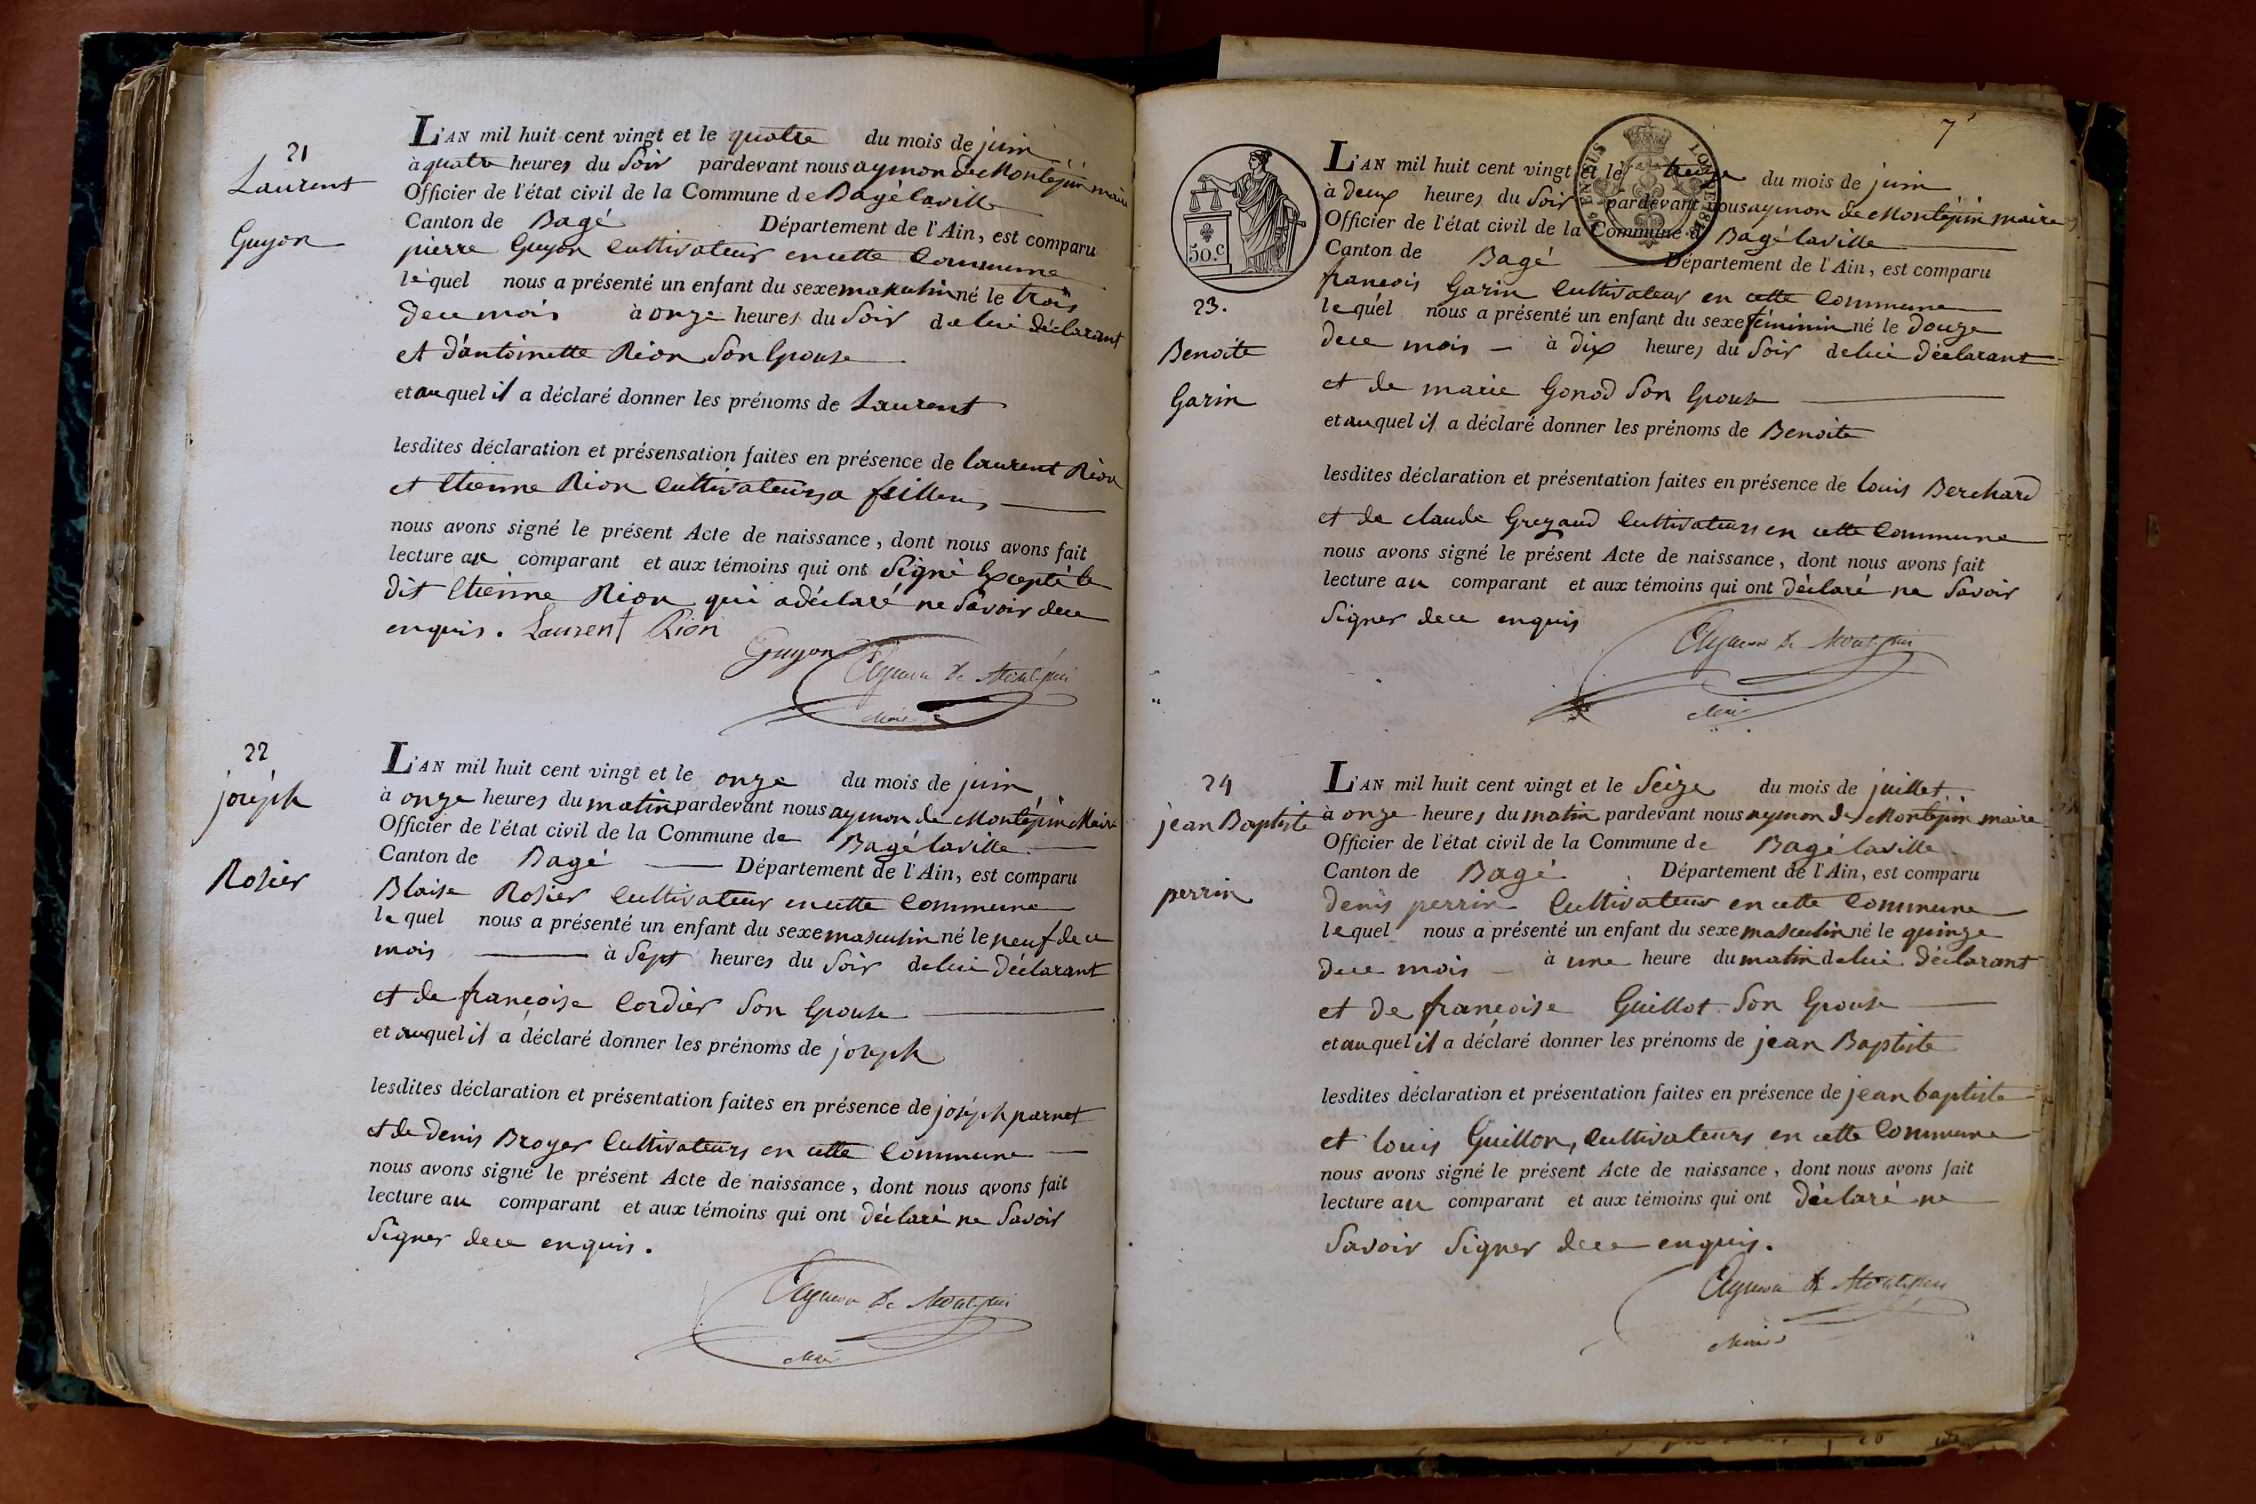 21
Laurent
Guyon
L'AN mil huit cent vingt et le quatre du mois de juin
à quatre heures du Soir pardevant nous aymon de Montépin maire
Officier de l'état civil de la Commune de Bagélaville
Canton de Bagé Département de l'Ain, est comparu
pierre Guyon Cultivateur en cette Commune
lequel nous a présenté un enfant du sexe masculin né le trois
de ce mois à onze heures du Soir de lui déclarant
et d'antoinette Rion Son Epouse
et auquel il a déclaré donner les prénoms de Laurent
lesdites déclaration et présensation faites en présence de laurent Rion
et Etienne Rion Cultivateurs a feillens
nous avons signé le présent Acte de naissance, dont nous avons fait
lecture au comparant et aux témoins qui ont Signé Excepté le
dit Etienne Rion qui a déclaré ne Savoir de ce
enquis. Laurent Rion
Guyon Aymon de Montépin
Maire
22
joséph
Rosier
L'AN mil huit cent vingt et le onze du mois de juin
à onze heures du matin pardevant nous aymon de Montépin Maire
Officier de l'état civil de la Commune de Bagélaville
Canton de Bagé Département de l'Ain, est comparu
Blaise Rosier Cultivateur en cette Commune
lequel nous a présenté un enfant du sexe masculin né le neuf de ce
mois à Sept heures du Soir de lui déclarant
et de françoise Cordier Son Epouse
et auquel il a déclaré donner les prénoms de joseph
lesdites déclaration et présentation faites en présence de joséph parnet
et de denis Broyer Cultivateurs en cette Commune
nous avons signé le présent Acte de naissance, dont nous avons fait
lecture au comparant et aux témoins qui ont déclaré ne Savoir
Signer de ce enquis.
Aymon de Montépin
Maire
7
50.C
23.
Benoite
Garin
L'AN mil huit cent vingt et le treize du mois de juin
à deux heures du Soir pardevant nous aymon de Montépin maire
Officier de l'état civil de la Commune d Bagélaville
Canton de Bagé Département de l'Ain, est comparu
francois Garin Cultivateur en cette Commune
lequel nous a présenté un enfant du sexe féminin né le douze
de ce mois à dix heures du Soir de lui déclarant
et de marie Gonod Son Epouse
et auquel il a déclaré donner les prénoms de Benoite
lesdites déclaration et présentation faites en présence de louis Berchard
et de claude Greyaud Cultivateurs en cette Commune
nous avons signé le présent Acte de naissance, dont nous avons fait
lecture au comparant et aux témoins qui ont déclaré ne Savoir
Signer de ce enquis
Aymon de Montépin
Maire
24
jean Baptiste
perrin
L'AN mil huit cent vingt et le Seize du mois de juillet
à onze heures du matin pardevant nous aymon de Montépin maire
Officier de l'état civil de la Commune de Bagélaville
Canton de Bagé Département de l'Ain, est comparu
denis perrin Cultivateur en cette Commune
lequel nous a présenté un enfant du sexe masculin né le quinze
de ce mois à une heure du matin de lui déclarant
et de françoise Guillot Son Epouse
et auquel il a déclaré donner les prénoms de jean Baptiste
lesdites déclaration et présentation faites en présence de jean baptiste
et louis Guillon, Cultivateurs en cette Commune
nous avons signé le présent Acte de naissance, dont nous avons fait
lecture au comparant et aux témoins qui ont déclaré ne
Savoir Signer de ce enquis.
Aymon de Montépin
Maire